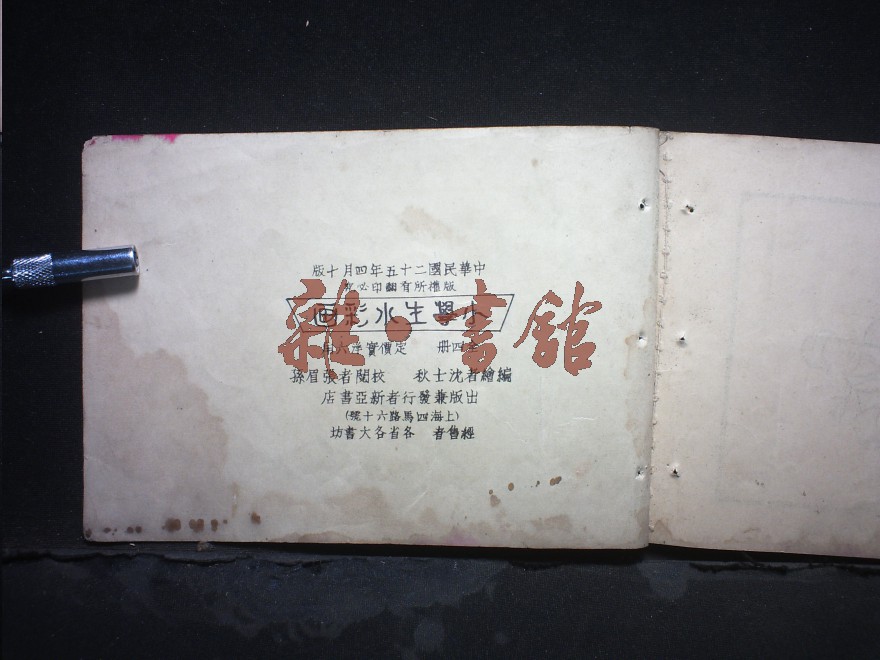 中華民國二十五年四月十版
版權所有翻印必究
小學生水彩画
全四册 定價實洋六角
編繪者沈士秋 校閱者張眉孫
出版兼發行者新亞書店
(上海四馬路六十號)
經售者 各省各大書坊
雜·書館